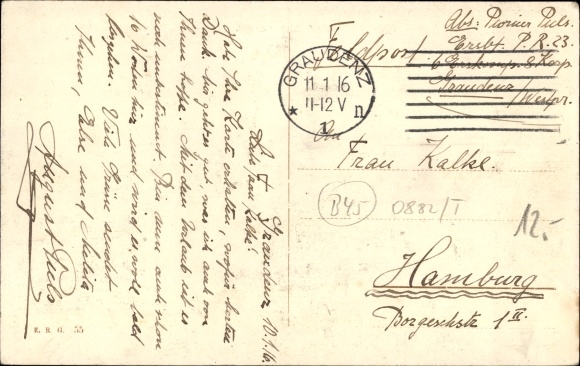 Graudenz 10.1.16.
Liebe Frau Kalke!
Habe Ihre Karte erhalten, wofür besten
Dank. Mir geht es gut, was ich auch von
Ihnen hoffe. Mit dem Urlaub ist es
noch unbestimmt. Bin nun auch schon
16 Wochen hier und wird es wohl bald
losgehen. Viele Grüsse sendet
Ihnen, und
August Puls
E. B. G. 55
Feldpost
Abs: Pionier Puls.
Ersbt. P. R. 23.
Graudenz
/Westpr.
GRAUDENZ
11 1 16
11-12 V
* 1 n
An
Frau Kalke.
B45
0882/T
12.-
Hamburg
Borgeschstr 1 II.